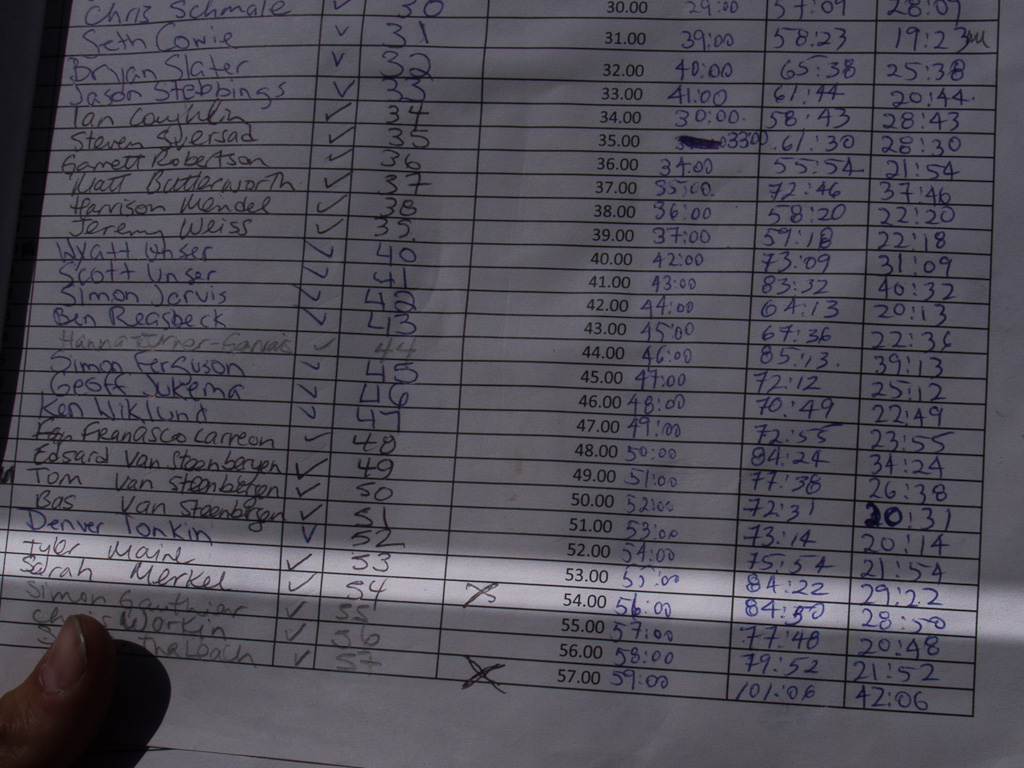 Chris Schmale ✓ 30 30.00 29:00 57:09 28:09
Seth Cowie ✓ 31 31.00 39:00 58:23 19:23
Bryan Slater ✓ 32 32.00 40:00 65:38 25:38
Jason Stebbings ✓ 33 33.00 41:00 61:44 20:44
Ian Coughlin ✓ 34 34.00 30:00 58:43 28:43
Steven Sversad ✓ 35 35.00 3300 61:30 28:30
Garrett Robertson ✓ 36 36.00 34:00 55:54 21:54
Matt Butterworth ✓ 37 37.00 35:00 72:46 37:46
Harrison Mendel ✓ 38 38.00 36:00 58:20 22:20
Jeremy Weiss ✓ 39 39.00 37:00 59:18 22:18
Wyatt Unser ✓ 40 40.00 42:00 73:09 31:09
Scott Unser ✓ 41 41.00 43:00 83:32 40:32
Simon Jarvis ✓ 42 42.00 44:00 64:13 20:13
Ben Reasbeck ✓ 43 43.00 45:00 67:36 22:36
Hanna ✓ 44 44.00 46:00 85:13 39:13
Simon Ferguson ✓ 45 45.00 47:00 72:12 25:12
Geoff Jukema ✓ 46 46.00 48:00 70:49 22:49
Ken Wiklund ✓ 47 47.00 49:00 72:55 23:55
Francisco Carreon ✓ 48 48.00 50:00 84:24 34:24
Edsard Van Steenbergen ✓ 49 49.00 51:00 77:38 26:38
Tom Van Steenbergen ✓ 50 50.00 52:00 72:31 20:31
Bas Van Steenbergen ✓ 51 51.00 53:00 73:14 20:14
Denver Tonkin ✓ 52 52.00 54:00 75:54 21:54
Tyler Maine ✓ 53 53.00 55:00 84:22 29:22
Sarah Merkel ✓ 54 X 54.00 56:00 84:50 28:50
Simon Gauthier ✓ 55 55.00 57:00 77:48 20:48
Chris Workin ✓ 56 56.00 58:00 79:52 21:52
thalbach ✓ 57 X 57.00 59:00 101:06 42:06